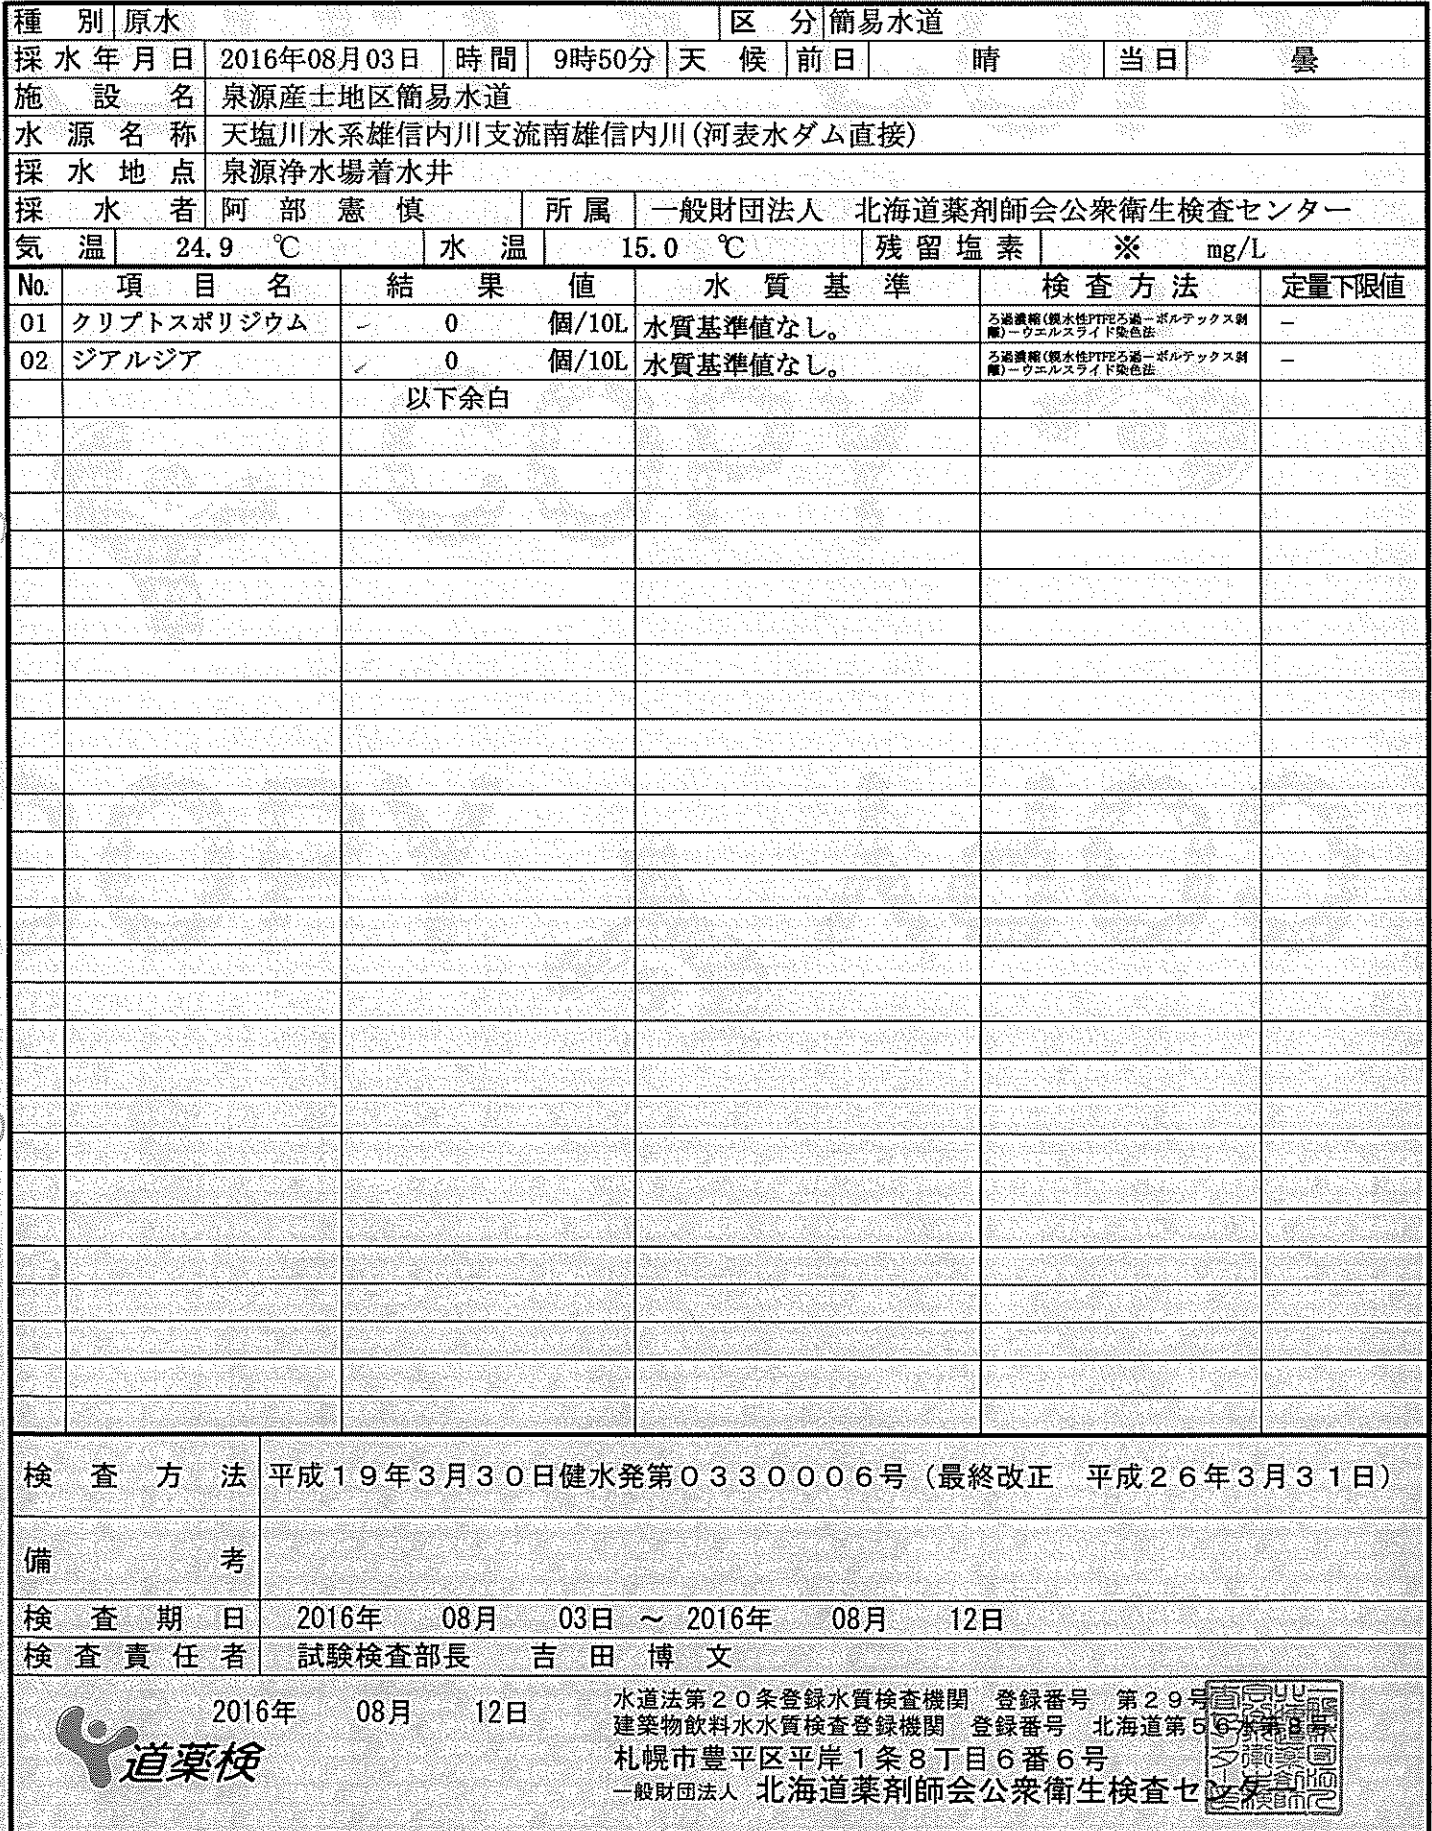 種別 原水 区分 簡易水道
採水年月日 2016年08月03日 時間 9時50分 天候 前日 晴 当日 曇
施設名 泉源産士地区簡易水道
水源名称 天塩川水系雄信内川支流南雄信内川(河表水ダム直接)
採水地点 泉源浄水場着水井
採水者 阿部憲慎 所属 一般財団法人 北海道薬剤師会公衆衛生検査センター
気温 24.9 ℃ 水温 15.0 ℃ 残留塩素 ※ mg/L
No. 項目名 結果値 水質基準 検査方法 定量下限値
01 クリプトスポリジウム 0 個/10L 水質基準値なし。 ろ過濃縮(親水性PTFEろ過－ボルテックス剝離)－ウエルスライド染色法 －
02 ジアルジア 0 個/10L 水質基準値なし。 ろ過濃縮(親水性PTFEろ過－ボルテックス剝離)－ウエルスライド染色法 －
以下余白
検査方法 平成１９年３月３０日健水発第０３３０００６号（最終改正 平成２６年３月３１日）
備考
検査期日 2016年 08月 03日 ～ 2016年 08月 12日
検査責任者 試験検査部長 吉田博文
2016年 08月 12日
道薬検
水道法第２０条登録水質検査機関 登録番号 第２９号
建築物飲料水水質検査登録機関 登録番号 北海道第５６水第８号
札幌市豊平区平岸１条８丁目６番６号
一般財団法人 北海道薬剤師会公衆衛生検査センター